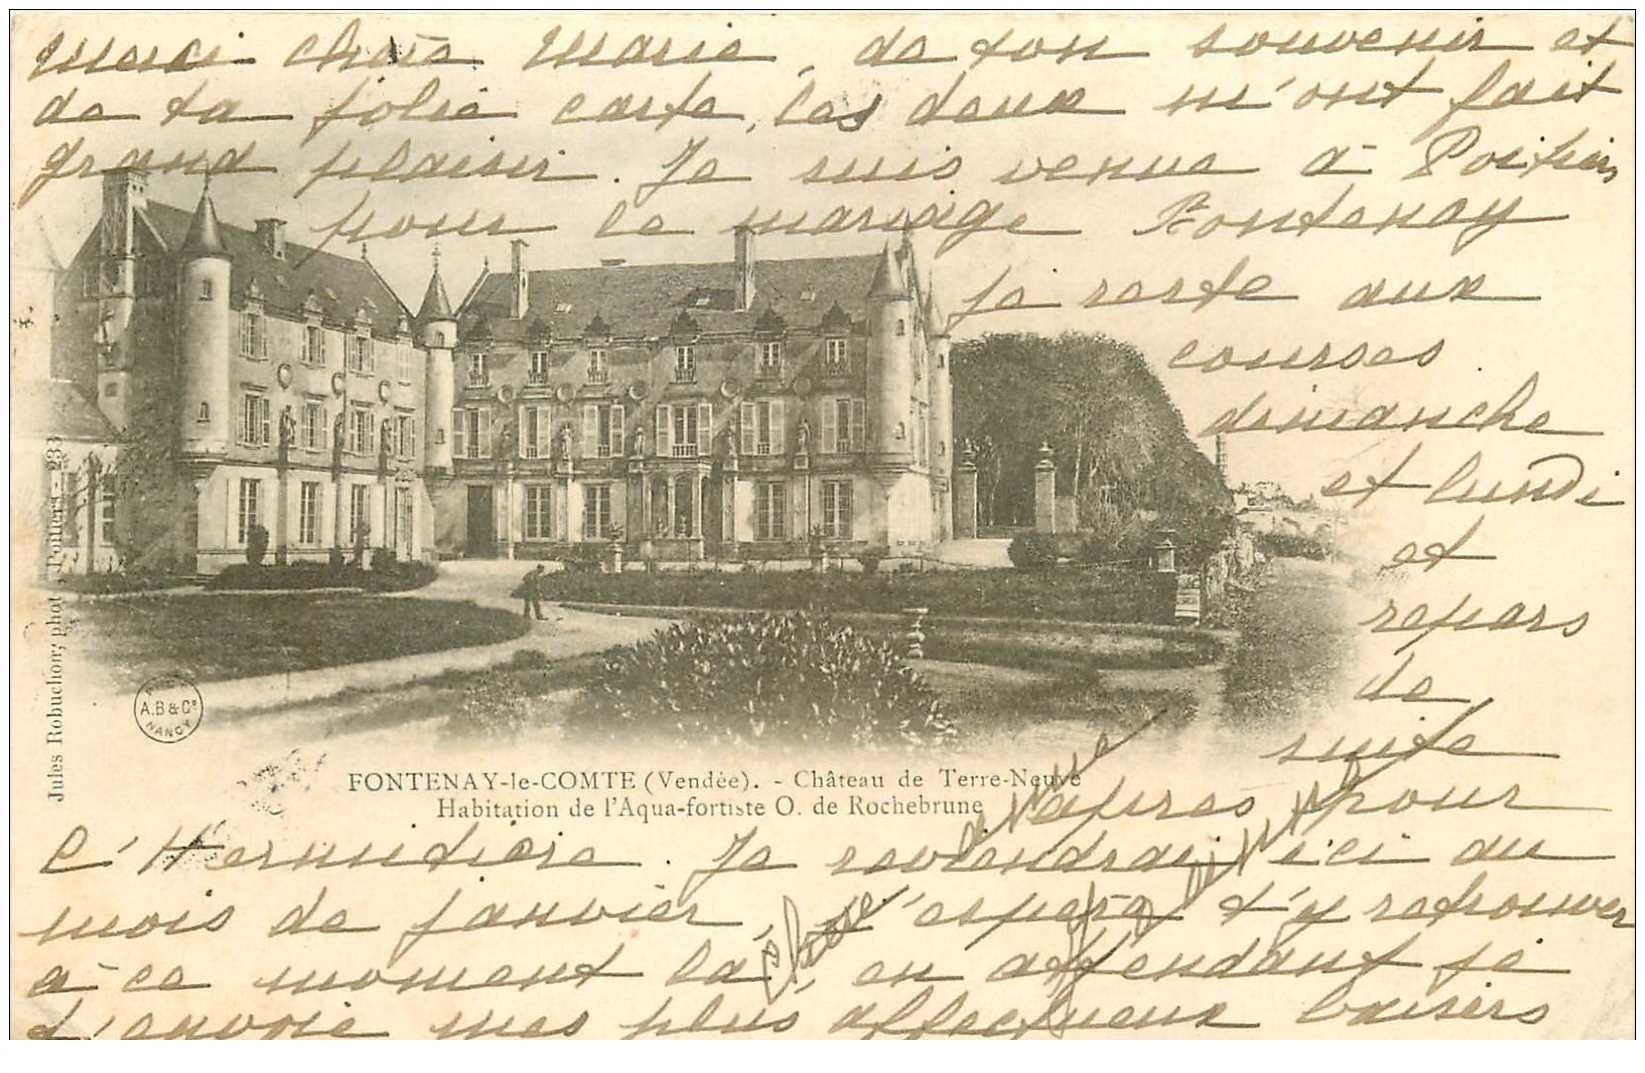 merci chère Marie, de ton souvenir et
de ta jolie carte, les deux m'ont fait
grand plaisir. Je suis venue à Poitiers
pour le mariage Fontenay
je reste aux
courses
dimanche
et lundi
et
repars
de
suite
après pour
l'Hermitière. Je reviendrai ici au
mois de janvier, j'espère t'y retrouver
à ce moment là, en attendant je
t'envoie mes plus affectueux baisers
Jules Robuchon, phot., Poitiers - 233
A.B & Cie
NANCY
FONTENAY-le-COMTE (Vendée). - Château de Terre-Neuve
Habitation de l'Aqua-fortiste O. de Rochebrune